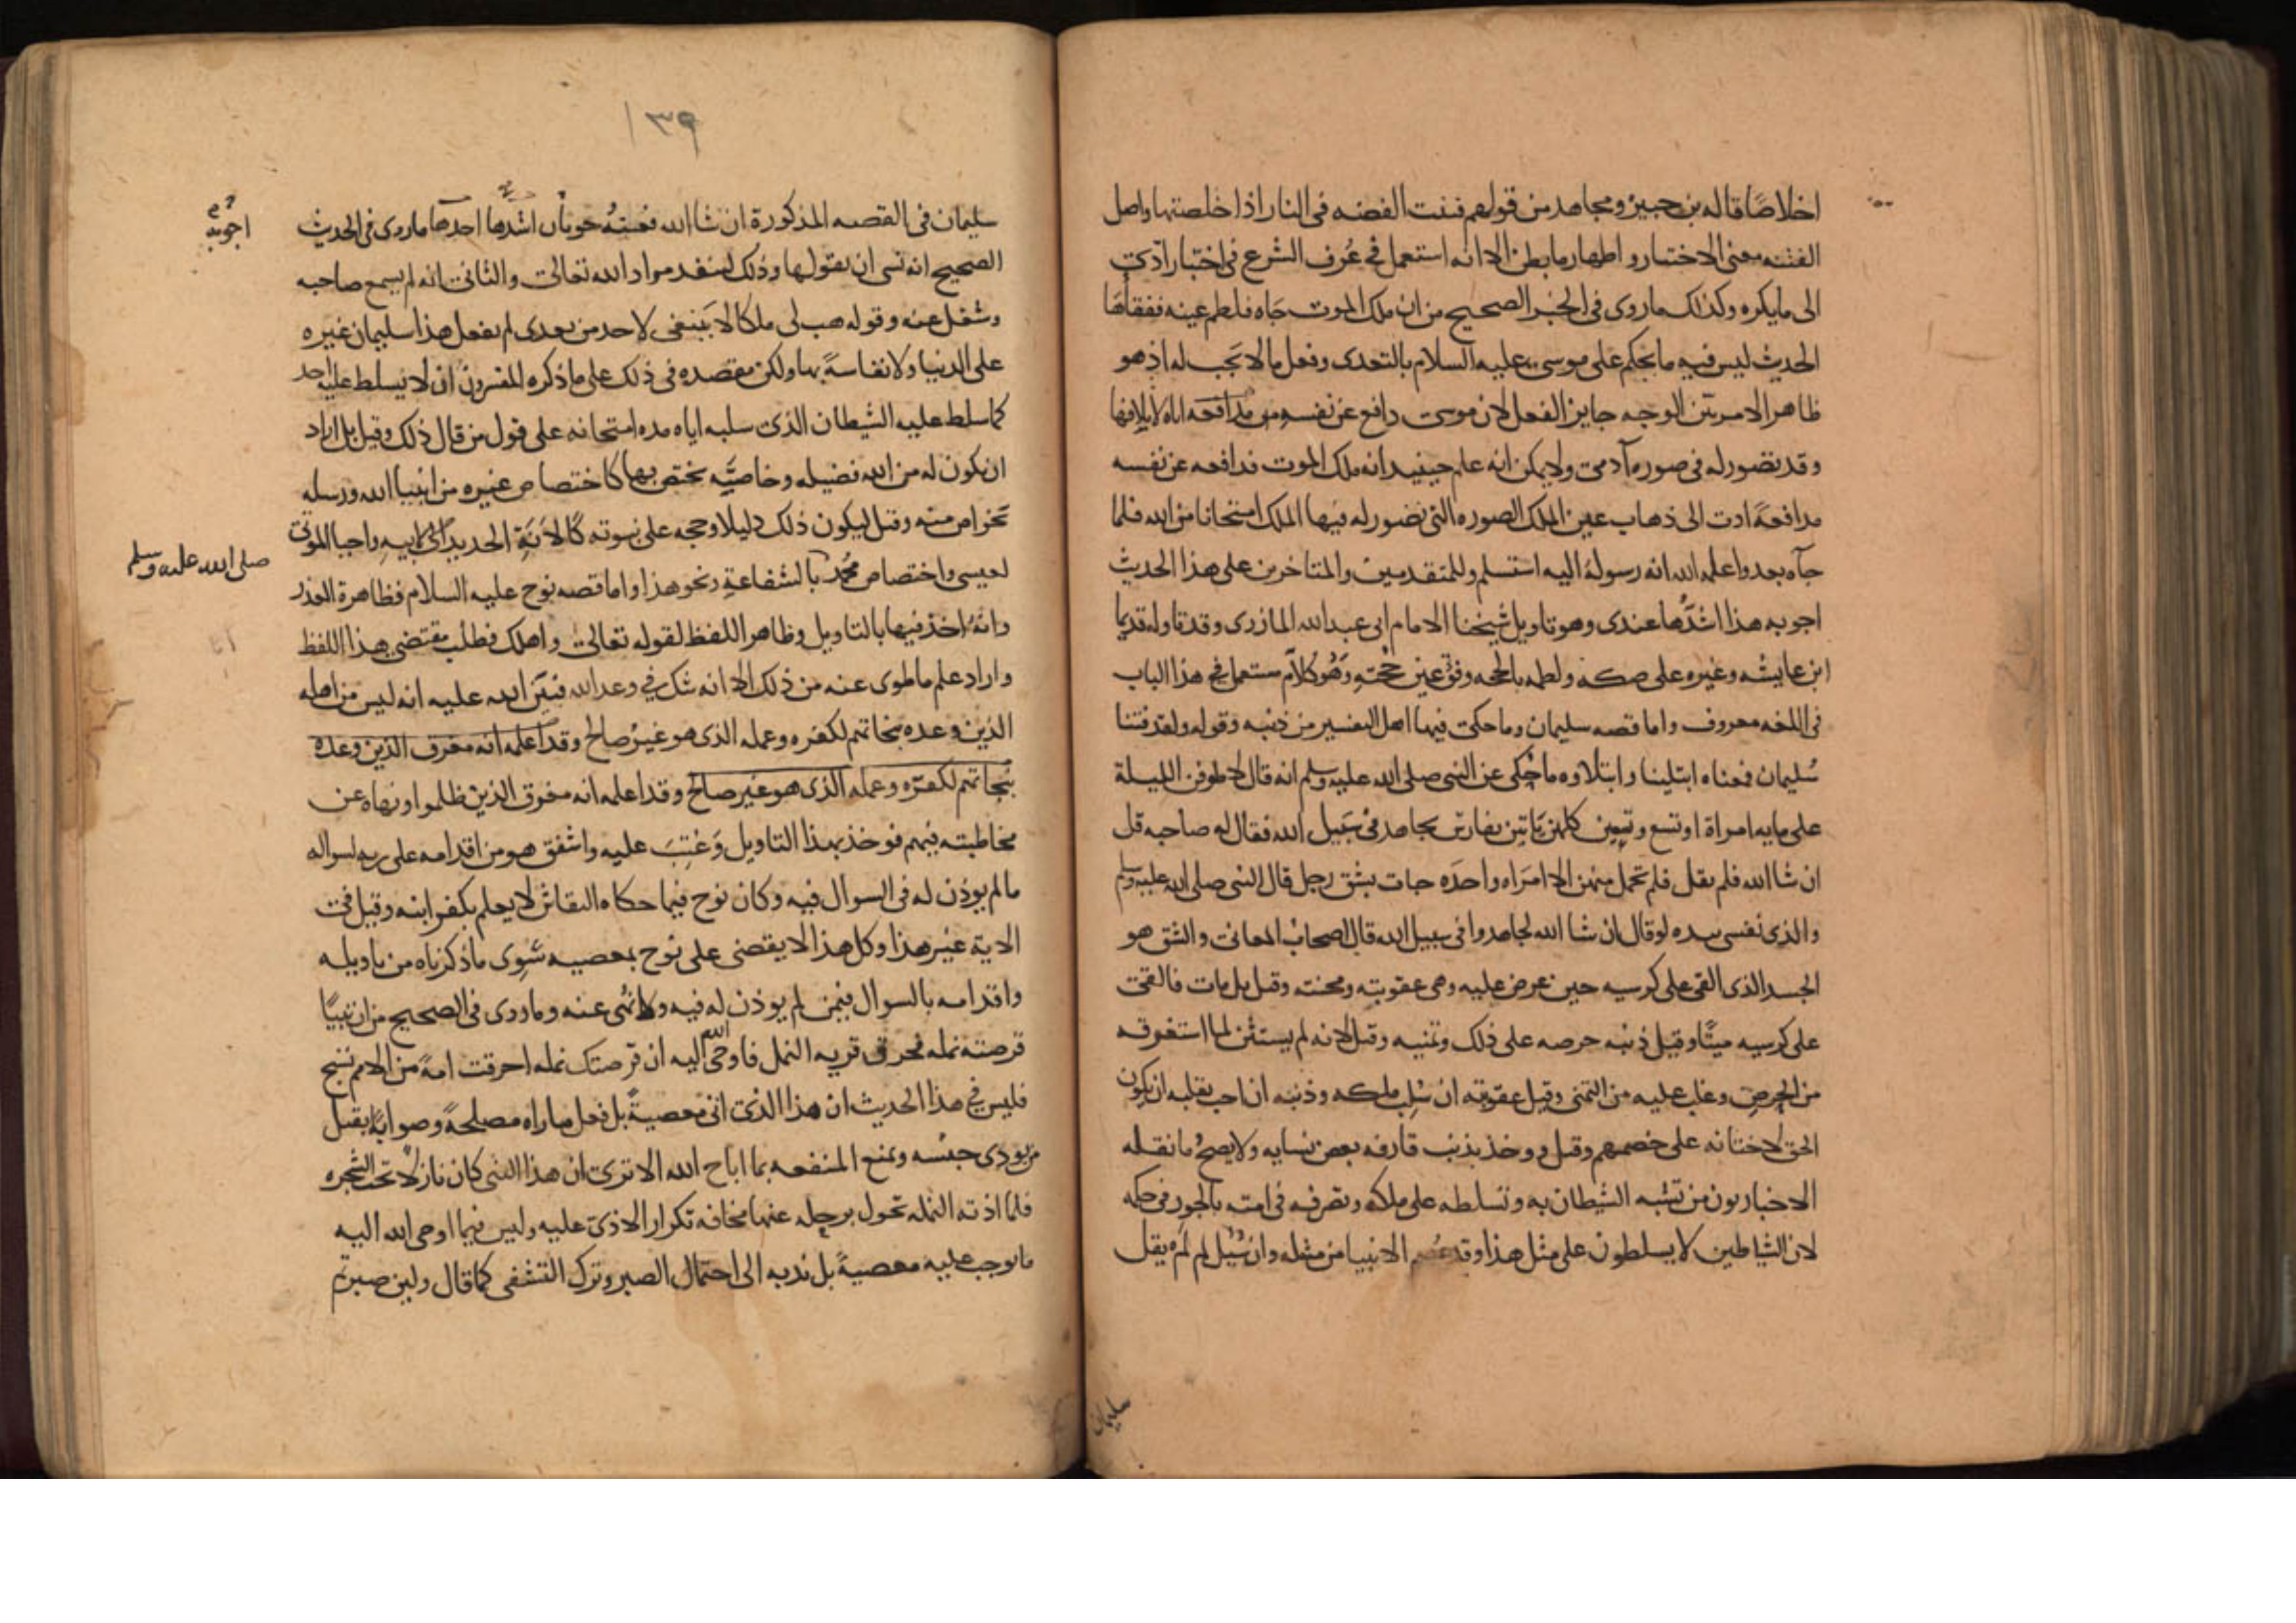 اخلاصًا قاله بن جبير ومجاهد من قولهم فتنت الفضه فى النار اذا خلصتها واصل
الفتنه معنى الاختبار واظهار ما بطن الا انه استعمل فى عُرف الشرع فى اختبار ادّى
الى ما يكره وكذلك ما روى فى الخبر الصحيح من ان ملك الموت جاه فلطم عينه ففقأها
الحديث ليس فيه ما يحكم على موسى عليه السلام بالتعدى وفعل ما لا يجب له اذ هو
ظاهر الامر بيّن الوجه جايز الفعل لان موسى دافع عن نفسه من اتاه لاتلافها
وقد تصور له فى صوره آدمى ولا يمكن انه علم حينيذ انه ملك الموت فدافعه عن نفسه
مدافعةً ادت الى ذهاب عين الملك الصوره التى تصور له فيها الملك امتحانا من الله فلما
جآه بعد واعلمه الله انه رسولهُ اليه استسلم وللمتقدمين والمتاخرين على هذا الحديث
اجوبه هذا اسَدُّها عندى وهو تاويل شيخنا الامام ابى عبد الله المازرى وقد تاوله قديما
ابن عايشه وغيره على صكه ولطمه بالحجه وفقء عين حجّتِهِ وَهُو كلام مستعمل فى هذا الباب
فى اللغه معروف واما قصه سليمان وما حكى فيها اهل التفسير من ذنبه وقوله ولقد فتنا
سُليمان فمعناه ابتلينا وابتلاوه ما حُكى عن النبى صلى الله عليه وسلم انه قال لاطوفن الليلة
على مايه امراة او تسع وتسعين كلهن يَاتين بفارس يجاهد فى سَبيل الله فقال له صاحبه قل
ان شا الله فلم يقل فلم تحمل منهن الا امرَاه واحدَه جات بشق رجل قال النبى صلى الله عليه وسلم
والذى نفسى بيده لو قال ان شا الله لجاهدوا فى سبيل الله قال اصحابُ المعانى والشق هو
الجسد الذى القى على كرسيه حين عرض عليه وهى عقوبته ومحنته وقيل بل مات فالقى
على كرسيه ميتًا وقيل ذنبه حرصه على ذلك وتمنيه وقيل لانه لم يستثن لما استغرقه
من الحرص وغلب عليه من التمنى وقيل عقوبته ان سُلِب ملكه وذنبه ان احب بقلبه ان يكون
الحق لاختانه على خصمهم وقيل ووخذ بذنب قارفه بعض نسايه ولا يصحُ ما نقله
الاخباريون من تشبه الشيطان به وتسلطه على ملكه وتصرفه فى امته بالجور فى حكمه
لان الشياطين لا يسلطون على مثل هذا وقد عُصم الانبيا من مثله وان سُيل لم لَم يقل
سليمان
١٣٩
سليمان فى القصه المذكورة ان شا الله فعنهُ جوابان اسَدّها احدها ما روى فى الحديث
اجوبه
الصحيح انه نسى ان يقولها وذلك لينفد مراد الله تعالى والثانى انه لم يسمع صاحبه
وشغل عنه وقوله هب لى ملكا لا يَنبغى لاحد من بعدى لم يفعل هذا سليمان غيره
على الدنيا ولا نفاسةً بها ولكن مقصده فى ذلك على ما ذكره المفسرون ان لا يسلط عليه احد
كما سلط عليه الشيطان الذى سلبه اياه مده امتحانه على قول من قال ذلك وقيل بل اراد
ان يكون له من الله فضيله وخاصّيه يختص بها كاختصاص غيره من انبيا الله ورسله
بخواص منه وقيل ليكون ذلك دليلا وحجه على نبوته كالانَةِ الحديد لابيه واحيا الموتى
لعيسى واختصاص محُمّد بالشفاعةِ ونحو هذا واما قصه نوح عليه السلام فظاهرة العذر
صلى الله عليه وسلم
وانهُ اخذ فيها بالتاويل وظاهر اللفظ لقوله تعالى واهلك فطلب مقتضى هذا اللفظ
واراد علم ما طوى عنه من ذلك لا انه شك فى وعد الله فبيّن الله عليه انه ليس من اهله
الذين وعده بنجاتهم لكفره وعمله الذى هو غيرُ صالح وقد اعلمه انه مغرق الذين وعده
بنجاتهم لكفرّه وعمله الذى هو غير صالح وقد اعلمه انه مغرق الذين ظلموا ونهاه عن
مخاطبته فيهم فووخذ بهذا التاويل وَعُتِبَ عليه واشفق هو من اقدامه على ربه لسواله
ما لم يوذن له فى السوال فيه وكان نوح فيما حكاه النقاش لا يعلم بكفر ابنه وقيل فى
الاية غير هذا وكل هذا لا يقضى على نوح بمعصيه سِوى ما ذكرناه من تاويله
واقدامه بالسوال فيمن لم يوذن له فيه ولا نُهى عنه وما روى فى الصحيح من ان نبيًا
قرصته نمله فحرق قريه النمل فاوحى الله اليه ان قرصتك نمله احرقت امةً من الامم تسبح
فليس فى هذا الحديث ان هذا الذى اتى معصيةً بل فعل ما راه مصلحةً وصوابًا بقتل
من يوذى جنسُه ويمنع المنفعه بما اباح الله الا ترى ان هذا النبى كان نازلًا تحت الشجره
فلما اذته النمله تحول برحله عنها مخافة تكرار الاذى عليه وليس فيما اوحى الله اليه
ما يوجب عليه معصيةً بل ندبه الى احتمال الصبر وترك التشفى كما قال ولين صبرتم